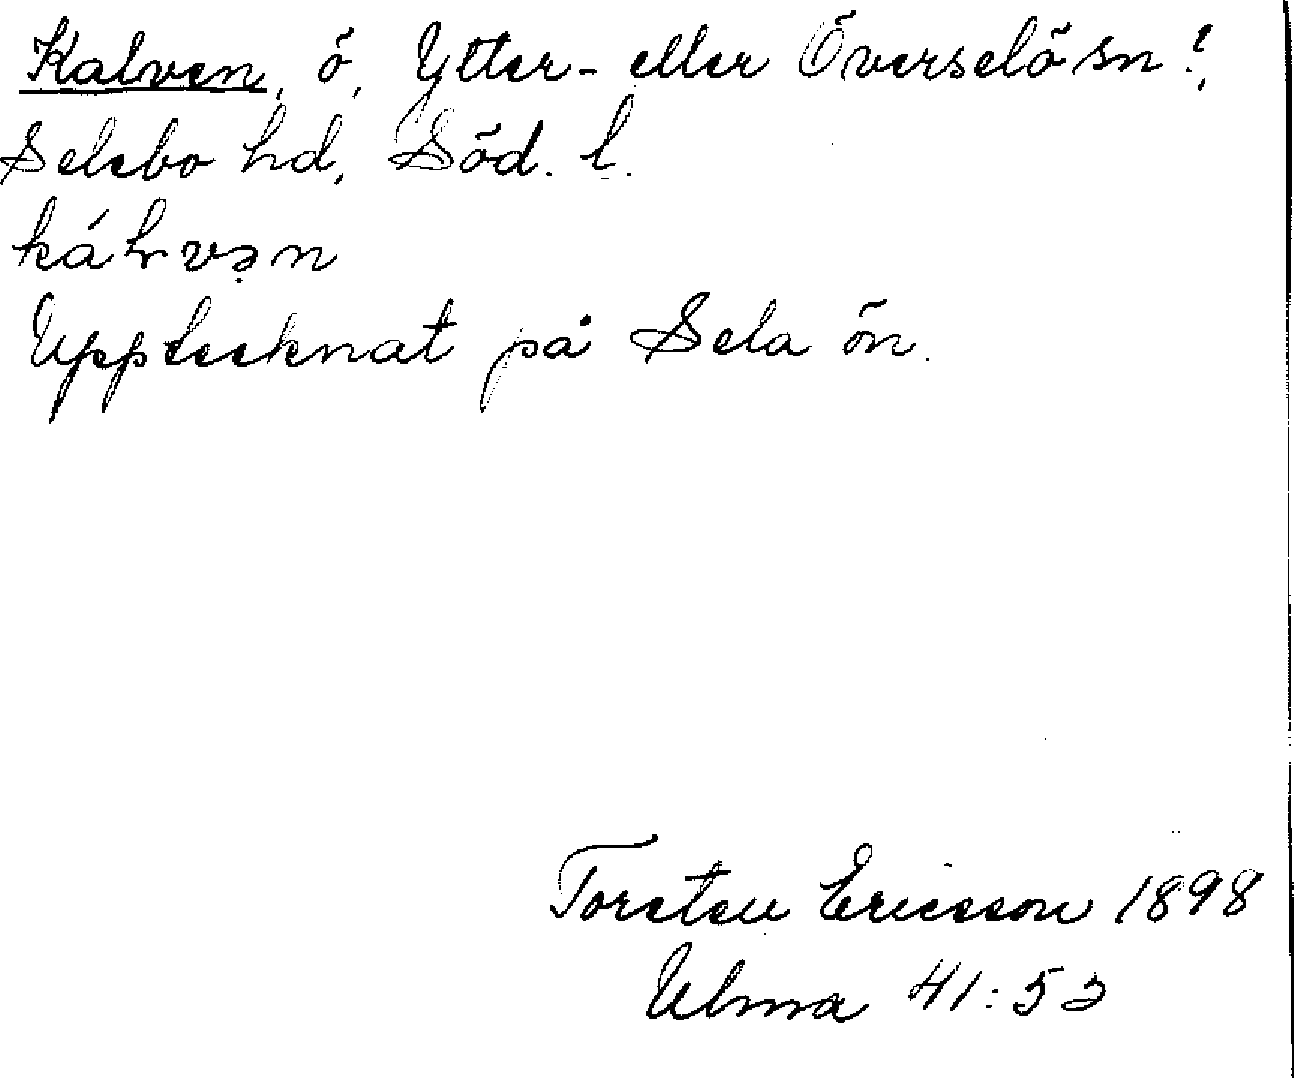 Kalven, ö, Ytter- eller Överselö sn?,
Selebo hd, Söd. l.
kálvən
Upptecknat på Sela ön.
Torsten Ericsson 1898
Ulma 41:53